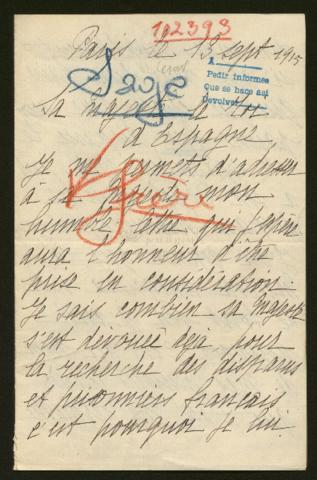 102393
Paris le 13 sept 1915
A
Pedir informes
Que se hace así
Devolver
Sa majesté le Roi
d'Espagne,
Je me permets d'adresser
à sa majesté mon
humble lettre qui j'espère
aura l'honneur d'être
prise en considération.
Je sais combien sa majesté
s'est dévouée déjà pour
la recherche des disparus
et prisonniers français
c'est pourquoi je lui